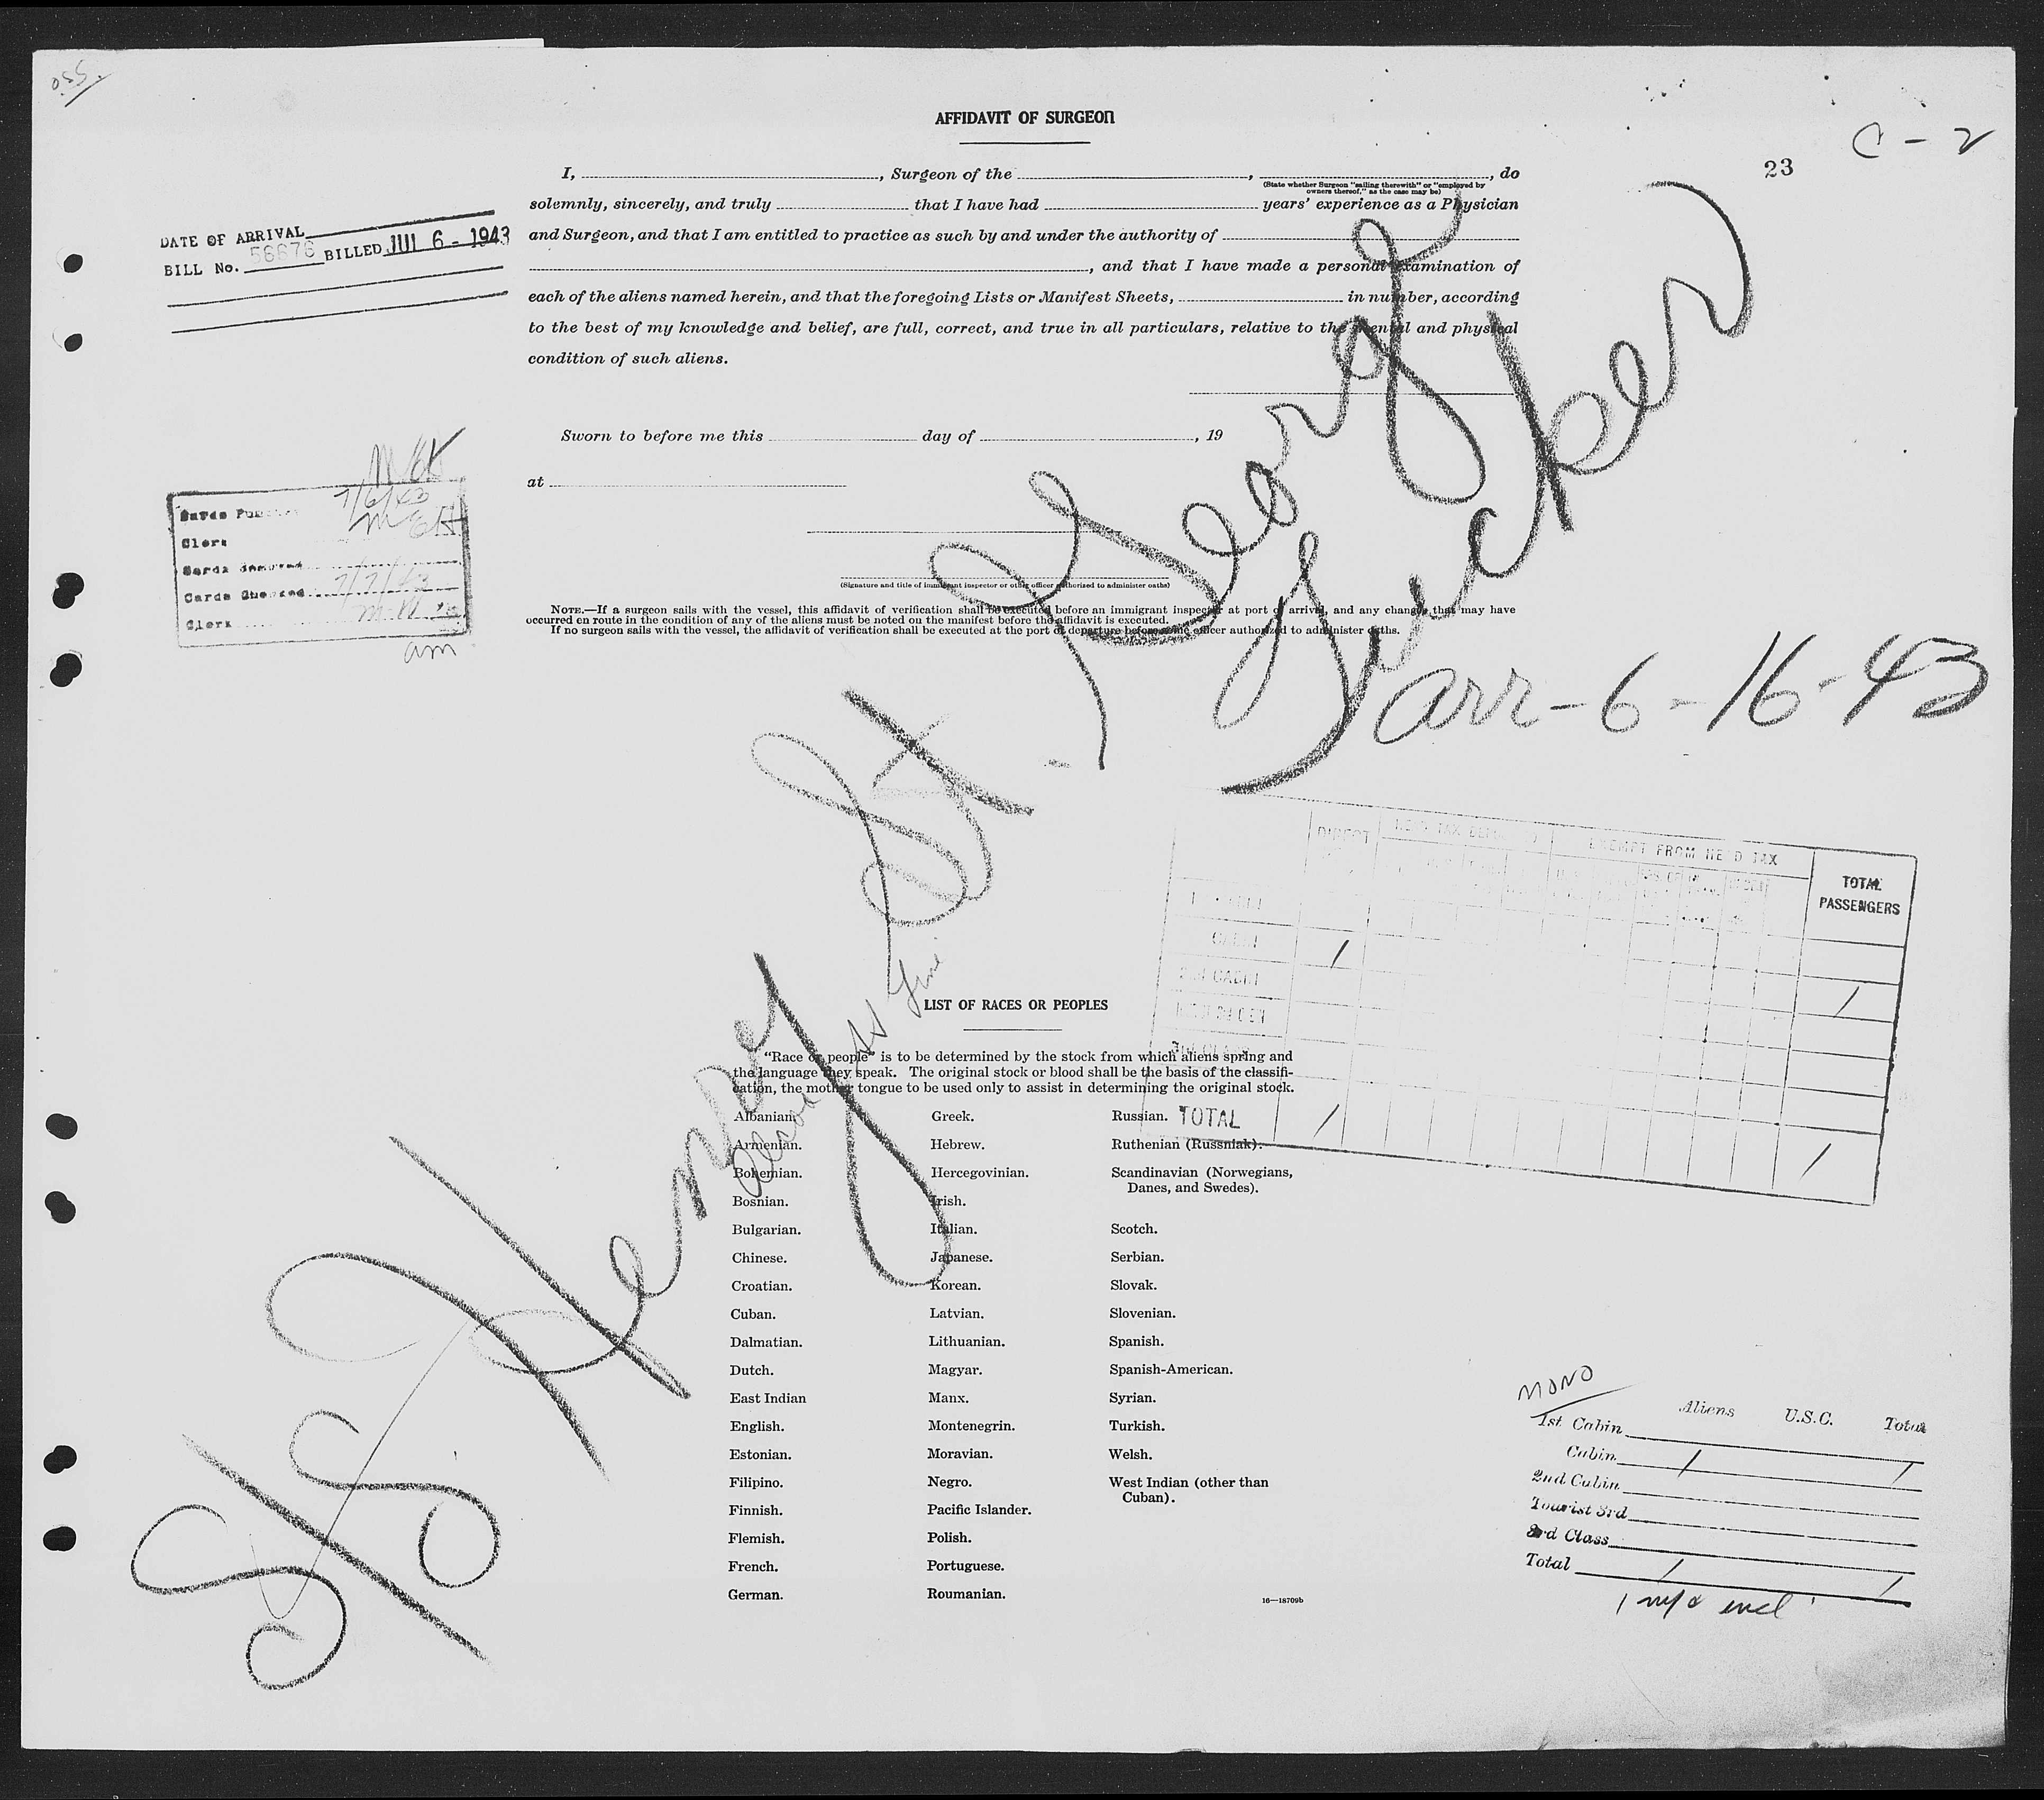 O.S.S.
AFFIDAVIT OF SURGEON
C - 2
23
I, , Surgeon of the , , do
(State whether Surgeon "sailing therewith" or "employed by
owners thereof," as the case may be)
solemnly, sincerely, and truly that I have had years' experience as a Physician
and Surgeon, and that I am entitled to practice as such by and under the authority of
, and that I have made a personal examination of
each of the aliens named herein, and that the foregoing Lists or Manifest Sheets, in number, according
to the best of my knowledge and belief, are full, correct, and true in all particulars, relative to the mental and physical
condition of such aliens.
DATE OF ARRIVAL
BILL No. 58676 BILLED JUL 6 - 1943
Sworn to before me this day of , 19
at
(Signature and title of immigrant inspector or other officer authorized to administer oaths)
NOTE.—If a surgeon sails with the vessel, this affidavit of verification shall be executed before an immigrant inspector at port of arrival, and any changes that may have
occurred en route in the condition of any of the aliens must be noted on the manifest before the affidavit is executed.
If no surgeon sails with the vessel, the affidavit of verification shall be executed at the port of departure before some officer authorized to administer oaths.
7/6/43
Clerk
Cards Checked 7/7/43
Clerk
am
S/S Henry St. George
Tucker
arr-6-16-43
DIRECT HEAD TAX EXEMPT FROM HEAD TAX TOTAL
PASSENGERS
CABIN / /
2nd CABIN
3rd CLASS
TOTAL / /
Line
LIST OF RACES OR PEOPLES
"Race or people" is to be determined by the stock from which aliens spring and
the language they speak. The original stock or blood shall be the basis of the classifi-
cation, the mother tongue to be used only to assist in determining the original stock.
Albanian.
Armenian.
Bohemian.
Bosnian.
Bulgarian.
Chinese.
Croatian.
Cuban.
Dalmatian.
Dutch.
East Indian
English.
Estonian.
Filipino.
Finnish.
Flemish.
French.
German.
Greek.
Hebrew.
Hercegovinian.
Irish.
Italian.
Japanese.
Korean.
Latvian.
Lithuanian.
Magyar.
Manx.
Montenegrin.
Moravian.
Negro.
Pacific Islander.
Polish.
Portuguese.
Roumanian.
Russian.
Ruthenian (Russniak).
Scandinavian (Norwegians,
Danes, and Swedes).
Scotch.
Serbian.
Slovak.
Slovenian.
Spanish.
Spanish-American.
Syrian.
Turkish.
Welsh.
West Indian (other than
Cuban).
16—18709b
MONO
Aliens U.S.C. Total
1st Cabin
Cabin / /
2nd Cabin
Tourist 3rd
3rd Class
Total / /